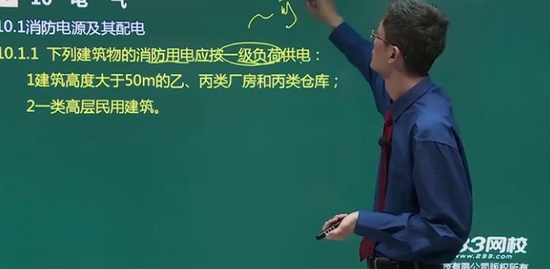 10 电 气
10.1消防电源及其配电
10.1.1 下列建筑物的消防用电应按一级负荷供电：
1建筑高度大于50m的乙、丙类厂房和丙类仓库；
2一类高层民用建筑。
33网校
www.233.com
有限公司版权所有